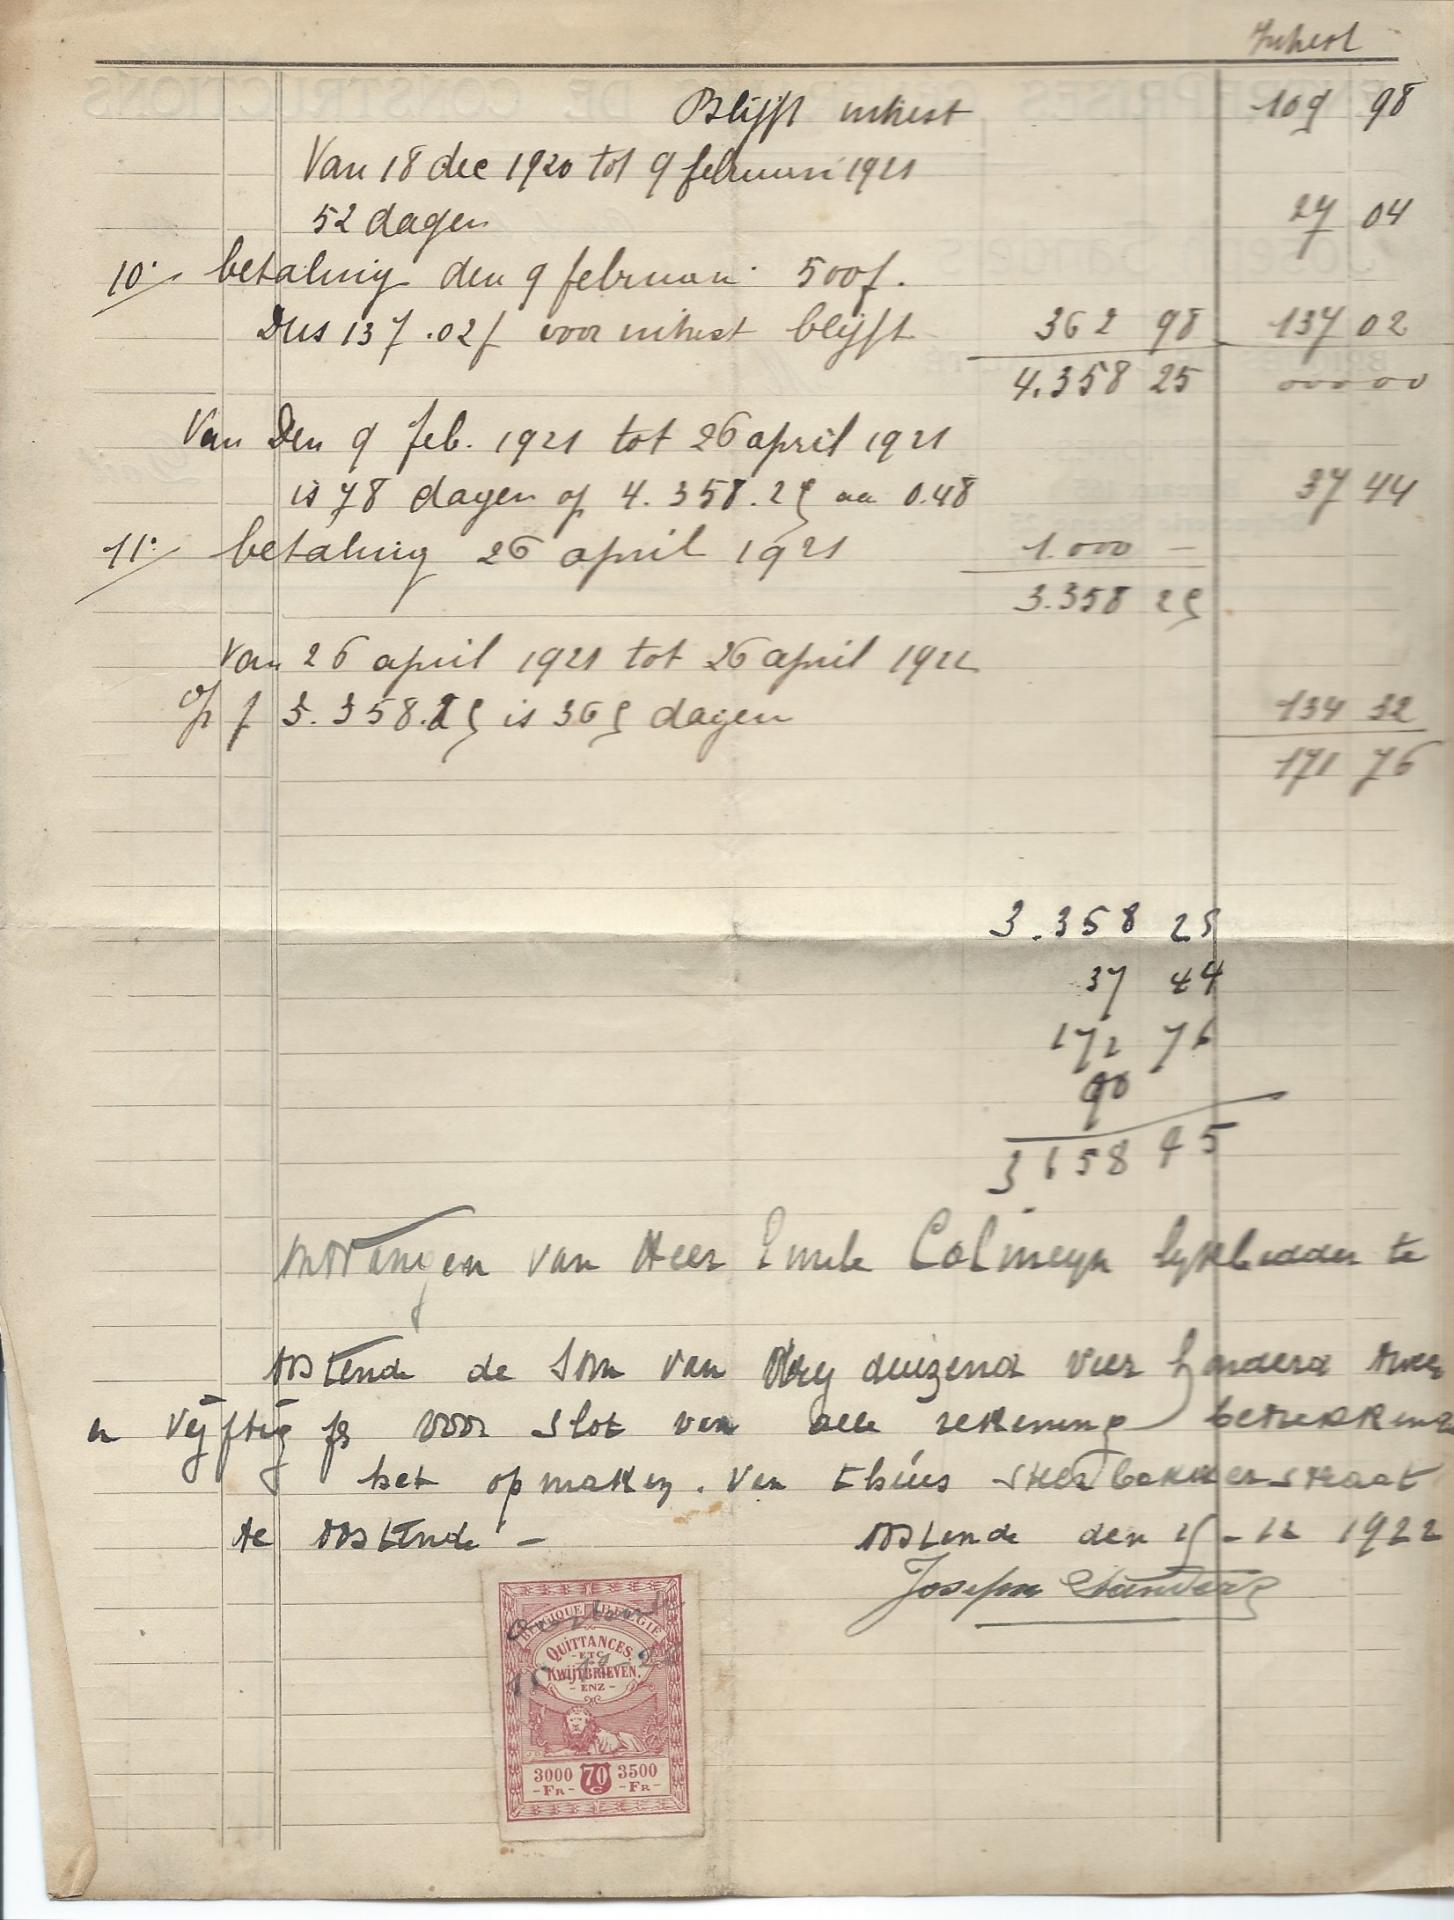 Intrest
Blijft intrest 109 98
Van 18 dec 1920 tot 9 februari 1921
52 dagen 27 04
10. betaling den 9 februari 500f.
Dus 137.02f voor intrest blijft 362 98 137 02
4.358 25 000 00
Van Den 9 feb. 1921 tot 26 april 1921
is 78 dagen op 4.358.25 aa 0.48 37 44
11. betaling 26 april 1921 1.000 —
3.358 25
Van 26 april 1921 tot 26 april 1922
op f 3.358.25 is 365 dagen 134 32
171 76
3.358 25
37 44
172 76
90
3658 45
Ontvangen van Heer Emile Colmeyn te
Ostende de Som van Drij duizend vier honderd twee
en vijftig fs voor slot van alle rekening betrekking
het opmaken. van thuis straat
te Ostende — Ostende den 15-12 1922
Joseph
BELGIQUE BELGIË
QUITTANCES
- ETC -
KWIJTBRIEVEN.
- ENZ -
3000 70 3500
- FR - C - FR -